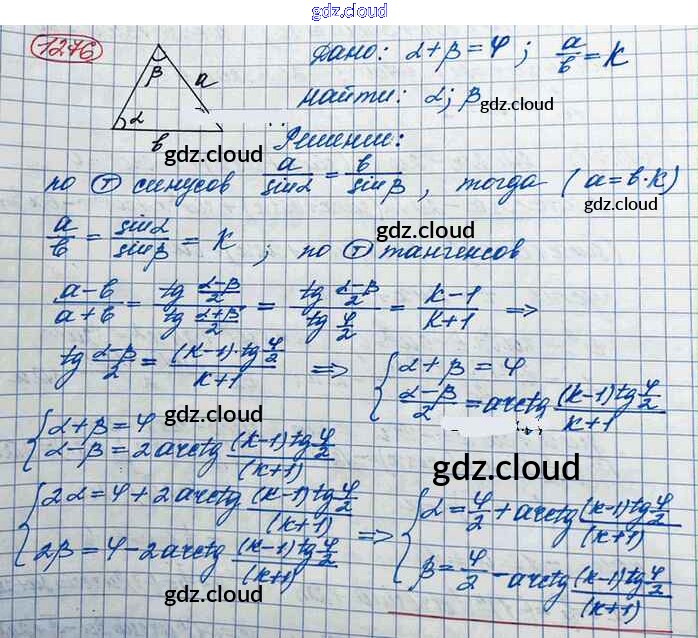 gdz.cloud
1276
Дано: α+β=φ; a/b=K
β a
найти: α; β gdz.cloud
α
b
Решение:
gdz.cloud
по Т синусов a/sinα = b/sinβ, тогда (a=b·K)
gdz.cloud
a/b = sinα/sinβ = K; по Т тангенсов
gdz.cloud
(a-b)/(a+b) = tg (α-β)/2 / tg (α+β)/2 = tg (α-β)/2 / tg φ/2 = (K-1)/(K+1) ⇒
tg (α-β)/2 = (K-1)·tg φ/2 / (K+1) ⇒ { α+β=φ
(α-β)/2 = arctg (K-1)tg φ/2 / (K+1)
gdz.cloud
{ α+β=φ
α-β = 2arctg (K-1)tg φ/2 / (K+1)
gdz.cloud
{ 2α=φ+2arctg (K-1)tg φ/2 / (K+1)
gdz.cloud
2β=φ-2arctg (K-1)tg φ/2 / (K+1)
gdz.cloud
⇒ { α=φ/2+arctg (K-1)tg φ/2 / (K+1)
β=φ/2-arctg (K-1)tg φ/2 / (K+1)
gdz.cloud